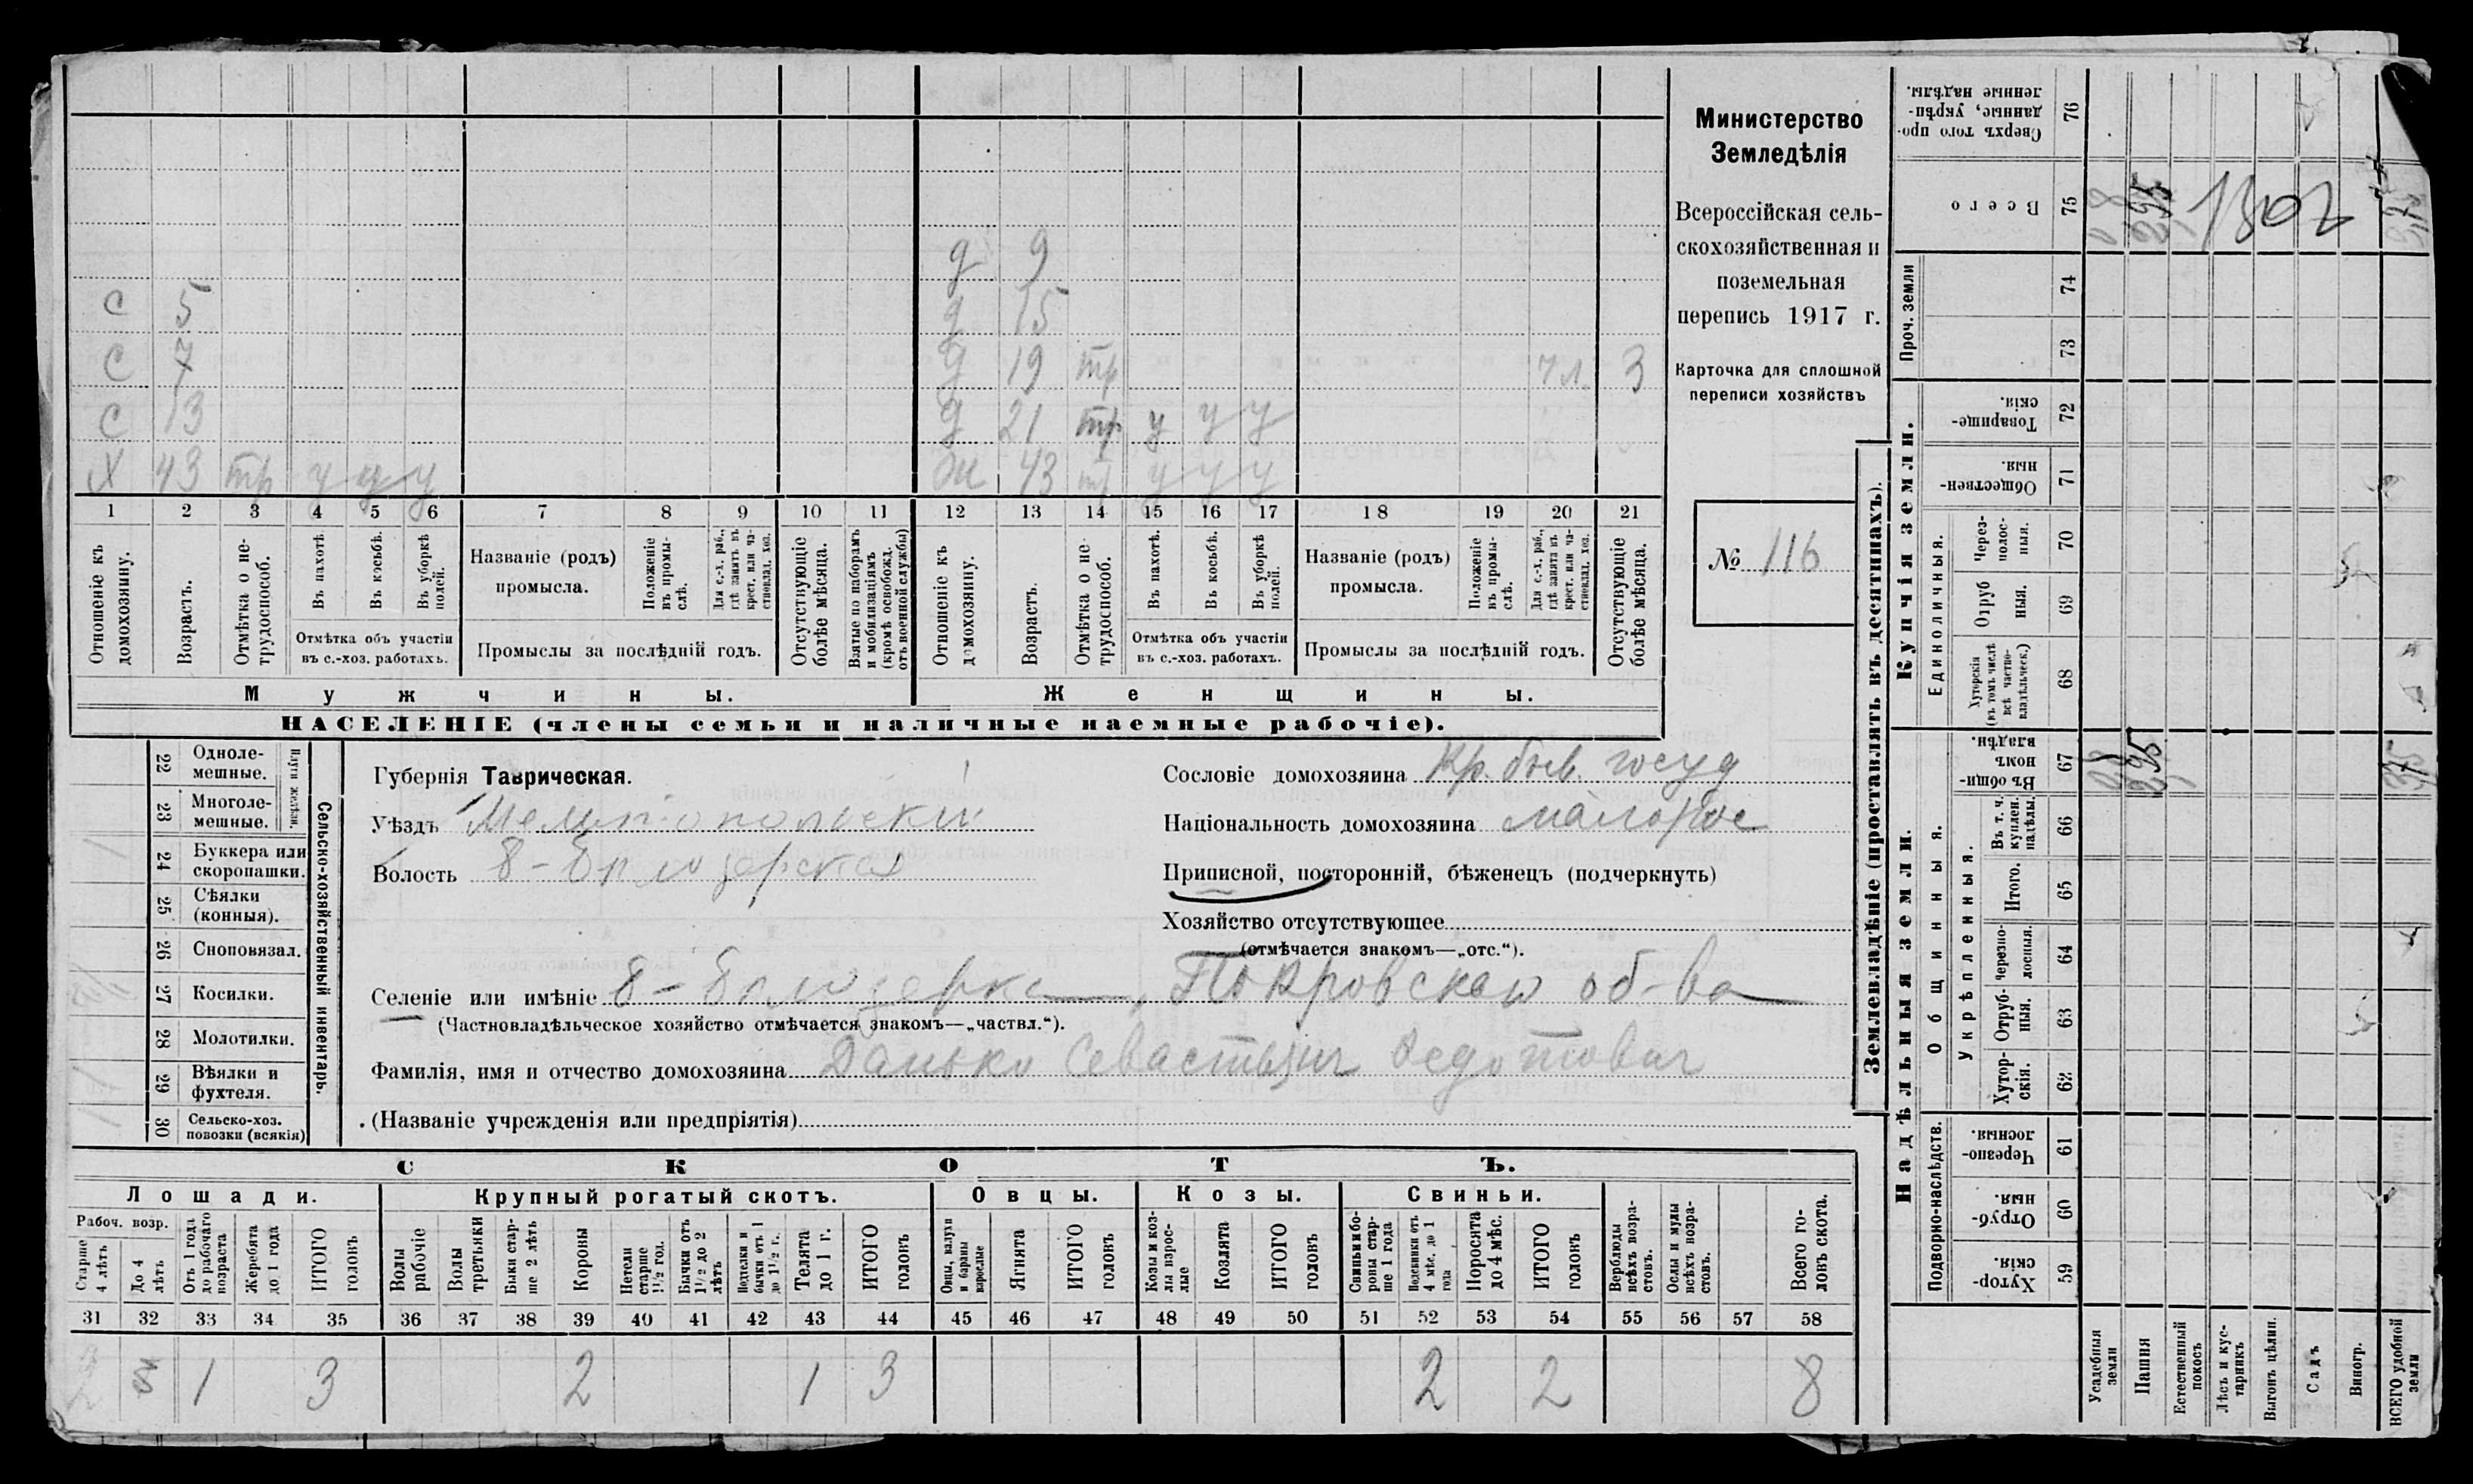 Министерство
Земледѣлія
Всероссійская сель-
скохозяйственная и
поземельная
перепись 1917 г.
Карточка для сплошной
переписи хозяйствъ
№ 116
д 9
С 5 д 15
С 7 д 19 тр 3
С 13 д 21 тр у у у
Х 43 тр у у у Ж 43 тр у у у
1 2 3 4 5 6 7 8 9 10 11 12 13 14 15 16 17 18 19 20 21
Отношеніе къ домохозяину.
Возрастъ.
Отмѣтка о не-трудоспособ.
Въ пахотѣ.
Въ косьбѣ.
Въ уборкѣ полей.
Названіе (родъ) промысла.
Положеніе въ промы-слѣ.
Для с.-х. раб., гдѣ занятъ въ крест. или ча-стновлад. хоз.
Отсутствующіе болѣе мѣсяца.
Взятые по наборамъ и мобилизаціямъ (кромѣ освобожд. отъ военной службы)
Отношеніе къ домохозяину.
Возрастъ.
Отмѣтка о не трудоспособ.
Въ пахотѣ.
Въ косьбѣ.
Въ уборкѣ полей.
Названіе (родъ) промысла.
Положеніе въ промы-слѣ.
Для с.-х. раб., гдѣ занятъ въ крест. или ча-стновлад. хоз.
Отсутствующіе болѣе мѣсяца.
Отмѣтка объ участіи въ с.-хоз. работахъ.
Промыслы за послѣдній годъ.
Отмѣтка объ участіи въ с.-хоз. работахъ.
Промыслы за послѣдній годъ.
Мужчины. Женщины.
НАСЕЛЕНІЕ (члены семьи и наличные наемные рабочіе).
Сельско-хозяйственный инвентарь.
Плуги желѣзн.
22 Одноле-мешные.
23 Многоле-мешные.
24 Буккера или скоропашки.
25 Сѣялки (конныя).
26 Сноповязал.
27 Косилки.
28 Молотилки.
29 Вѣялки и фухтеля.
30 Сельско-хоз. повозки (всякія)
Губернія Таврическая.
Уѣздъ Мелитопольскій
Волость В-Бѣлозерская
Сословіе домохозяина Кр. быв. госуд
Національность домохозяина малорос
Приписной, посторонній, бѣженецъ (подчеркнуть)
Хозяйство отсутствующее
(отмѣчается знакомъ—„отс.“).
Селеніе или имѣніе В-Бѣлозерка, Покровскаго об-ва
(Частновладѣльческое хозяйство отмѣчается знакомъ—„частвл.“).
Фамилія, имя и отчество домохозяина Данько Севастьян Федотович
(Названіе учрежденія или предпріятія)
СКОТЪ.
Лошади. Крупный рогатый скотъ. Овцы. Козы. Свиньи.
Рабоч. возр.
Старше 4 лѣтъ
До 4 лѣтъ
Отъ 1 года до рабочаго возраста
Жеребята до 1 года
ИТОГО головъ
Волы рабочіе
Волы третьяки
Быки стар-ше 2 лѣтъ
Коровы
Нетели старше 1½ год.
Бычки отъ 1½ до 2 лѣтъ
Подтелки и бычки отъ 1 до 1½ г.
Телята до 1 г.
ИТОГО головъ
Овцы, валухи и бараны взрослые
Ягнята
ИТОГО головъ
Козы и коз-лы взрос-лые
Козлята
ИТОГО головъ
Свиньи и бо-ровы стар-ше 1 года
Подсвинки отъ 4 мѣс. до 1 года
Поросята до 4 мѣс.
ИТОГО головъ
Верблюды всѣхъ возра-стовъ.
Ослы и мулы всѣхъ возра-стовъ.
Всего го-ловъ скота.
31 32 33 34 35 36 37 38 39 40 41 42 43 44 45 46 47 48 49 50 51 52 53 54 55 56 57 58
1 3 2 1 3 2 2 8
Землевладѣніе (проставлять въ десятинахъ).
Надѣльныя земли. Купчія земли. Проч. земли
Подворно-наслѣдств. Общинныя. Укрѣпленныя. Единоличныя.
59 Хутор-скія.
60 Отруб-ныя.
61 Черезпо-лосныя.
62 Хутор-скія.
63 Отруб-ныя.
64 Черезпо-лосныя.
65 Итого.
66 Въ т. ч. куплен. надѣлы.
67 Въ общин-номъ владѣн.
68 Хуторскія (въ томъ числѣ всѣ частно-владѣльческ.)
69 Отруб ныя.
70 Через-полос-ныя.
71 Обществен-ныя.
72 Товарище-скія.
73
74
75 Всего
76 Сверхъ того про-данные, укрѣп-ленные надѣлы.
Усадебныя земли
Пашня
Естественный покосъ
Лѣсъ и кус-тарникъ
Выгонъ цѣлин.
Садъ
Виногр.
ВСЕГО удобной земли